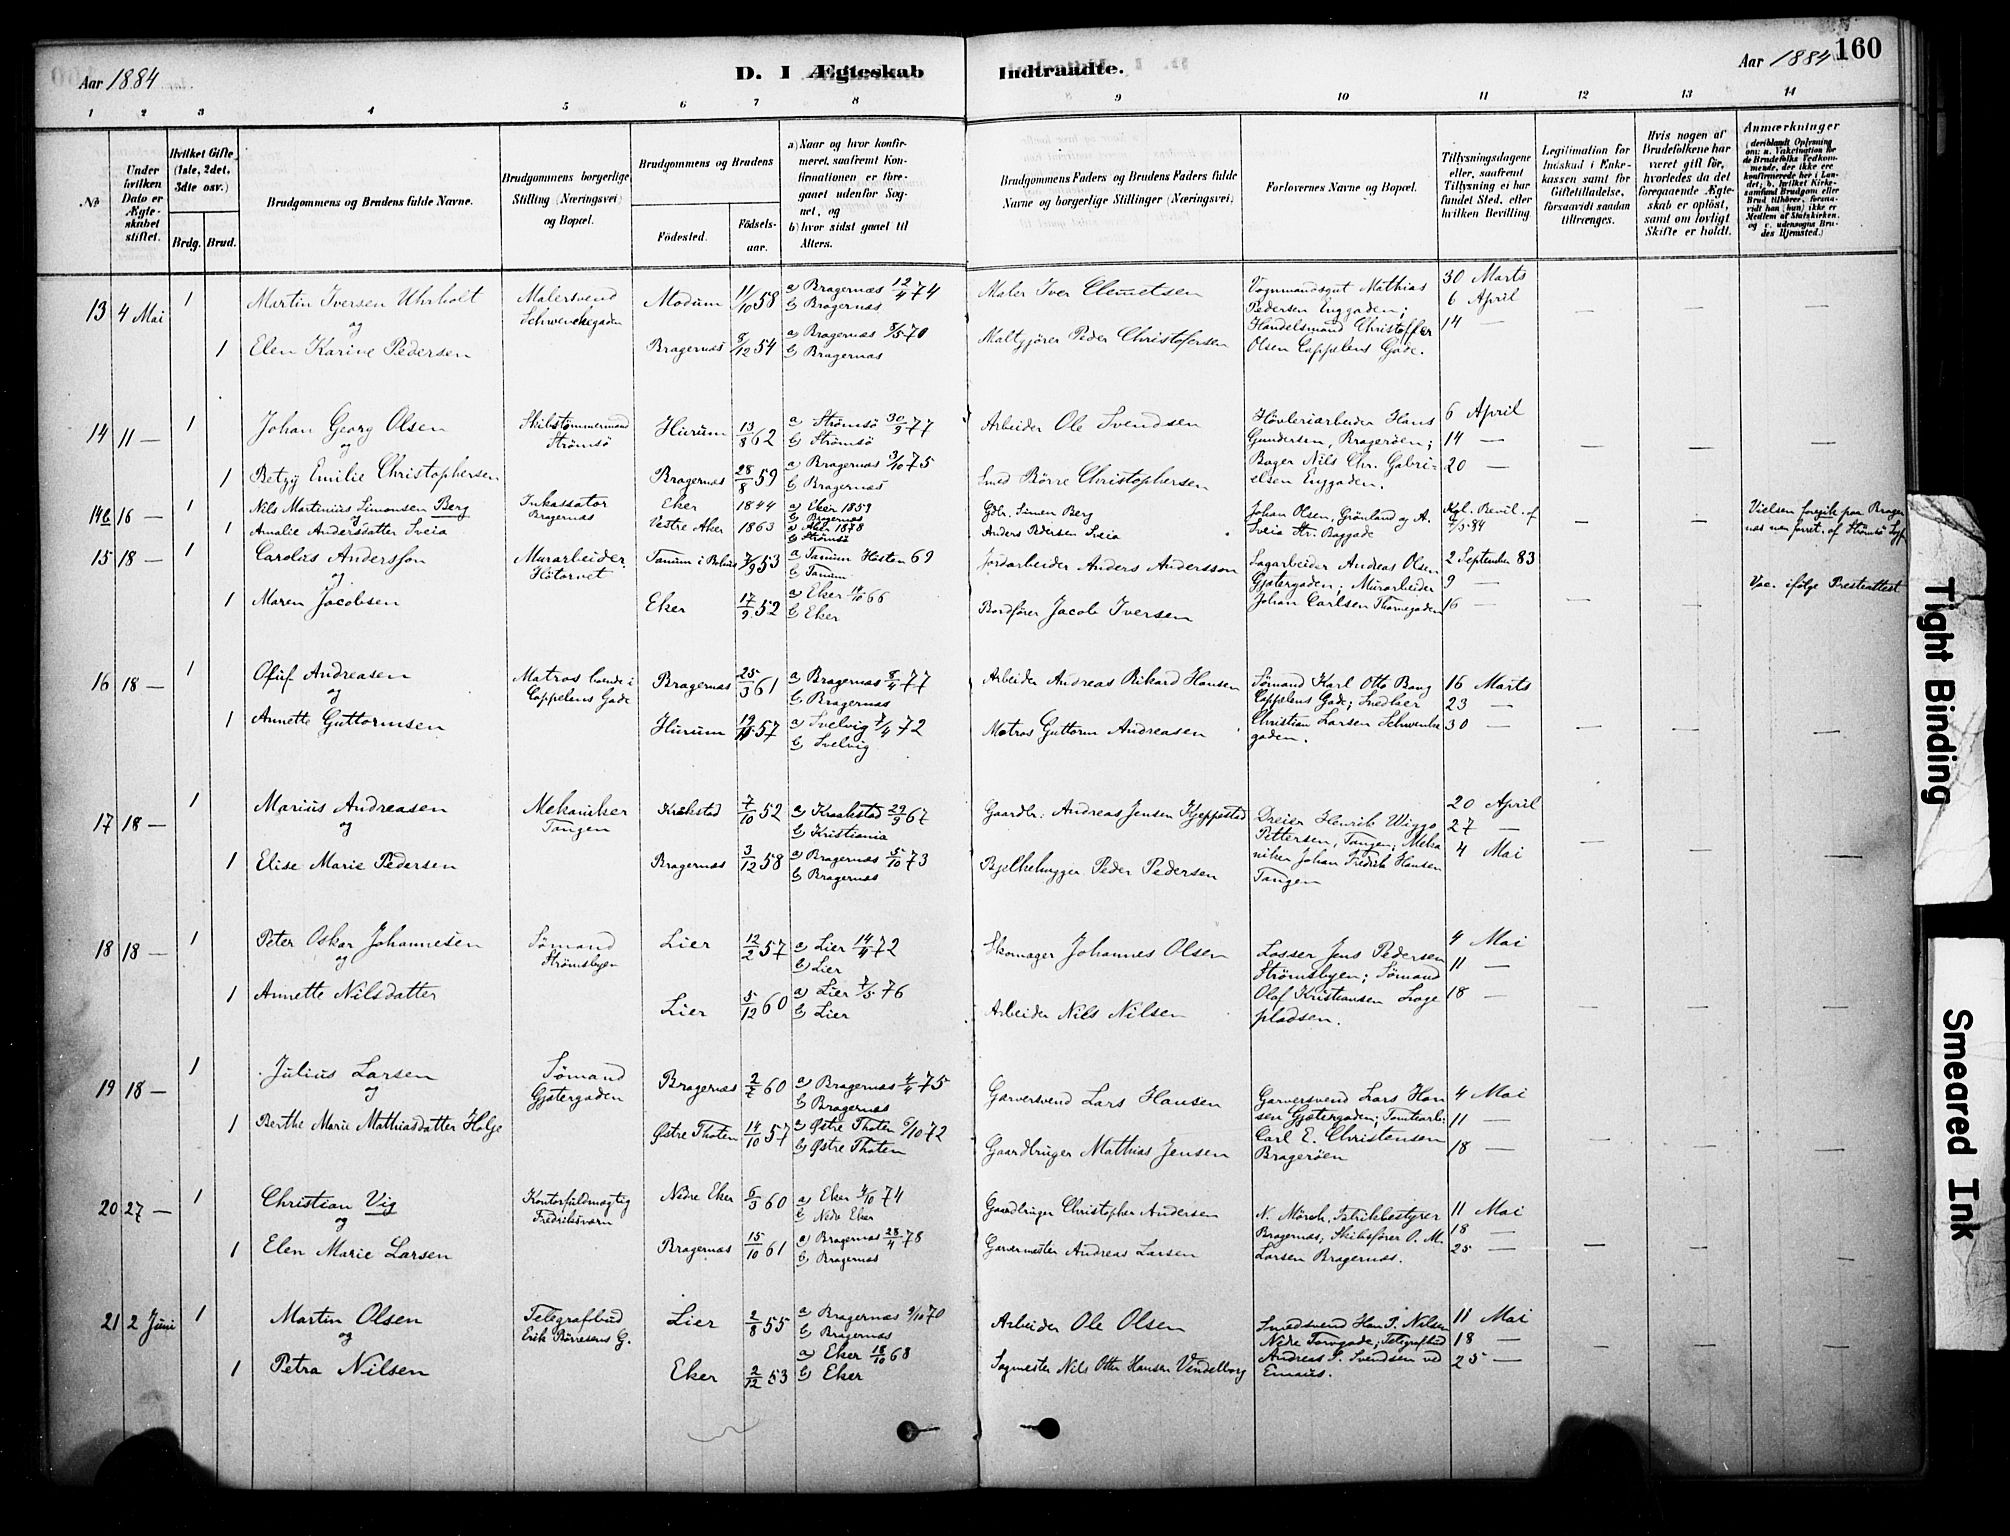 Aar 1884
D. I Ægteskab Indtraadte.
Aar 1884
160
1 2 3 4 5 6 7 8 9 10 11 12 13 14
No
Under hvilken Dato er Ægteskabet stiftet.
Hvilket Gifte (1ste, 2det, 3die osv.)
Brdg. Brud.
Brudgommens og Brudens fulde Navne.
Brudgommens borgerlige Stilling (Næringsvei) og Bopæl.
Brudgommens og Brudens
Fødested. Fødsels-aar.
a) Naar og hvor konfirmeret, saafremt Konfirmationen er foregaaet udenfor Sognet, og
b) hvor sidst gaaet til Alters.
Brudgommens Faders og Brudens Faders fulde Navne og borgerlige Stillinger (Næringsvei)
Forlovernes Navne og Bopæl.
Tillysningsdagene eller, saafremt Tillysning ei har fundet Sted, efter hvilken Bevilling
Legitimation for Indskud i Enkekassen samt for Giftetilladelse, forsaavidt saadan tiltrænges.
Hvis nogen af Brudefolkene har været gift før, hvorledes da det foregaaende Ægteskab er opløst, samt om lovligt Skifte er holdt.
Anmærkninger
13 4 Mai 1 Martin Iversen Uhrholt Malersvend Schwenckegaden Modum 11/10 58 a) Bragernæs 12/4 74 b) Bragernæs Maler Iver Clemetsen
og
1 Elen Karine Pedersen Bragernæs 8/12 54 a) Bragernæs 8/5 70 b) Bragernæs Maltgjører Peder Christofersen
Vognmandsgut Mathias Pedersen Enggaden; Handelsmand Christoffer Olsen Cappelens Gade.
30 Marts
6 April
14 —
14 11 — 1 Johan Georg Olsen Skibstømmermand Strømsø Hurum 13/8 62 a) Strømsø 30/9 77 b) Strømsø Arbeider Ole Svendsen
og
1 Betzy Emilie Christophersen Bragernæs 28/8 59 a) Bragernæs 3/10 75 b) Bragernæs Smed Børre Christophersen
Høvleriarbeider Hans Gundersen, Bragerøen; Bager Nils Chr. Gabrielsen Enggaden.
6 April
14 —
20 —
14b 16 — 1 Nils Martinius Simonsen Berg Inkassator Bragernæs Eker 1844 a) Eker 1859 b) Bragernæs Gbr. Simen Berg
og
1 Amalie Andersdatter Sveia Vestre Aker 1863 a) Akl. 1878 b) Strømsø Anders Pedersen Sveia
Johan Olsen, Grønland og A. Sveia Str. Baggade
Kgl. Bevil. af 7/5 84
Vielsen foregik paa Bragernæs
15 18 — 1 Carolus Andersson Murarbeider Høtorvet Tanum i Bohus 7/9 53 a) Tanum Høsten 69 b) Tanum Jordarbeider Anders Andersson
og
1 Maren Jacobsen Eker 17/9 52 a) Eker 14/10 66 b) Eker Bordfører Jacob Iversen
Sagarbeider Andreas Olsen Gjetergaden; Murarbeider Johan Carlsen Thornegaden
2 September 83
9 —
16 —
Vac. ifølge Presteattest
16 18 — 1 Oluf Andreasen Matros boende i Cappelens Gade Bragernæs 25/3 61 a) Bragernæs 8/4 77 b) Bragernæs Arbeider Andreas Rikard Hansen
og
1 Annette Guttormsen Hurum 19/11 57 a) Svelvig 7/4 72 b) Svelvig Matros Guttorm Andreasen
Sømand Karl Otto Bang Cappelens Gade; Snedker Christian Larsen Schwenkegaden.
16 Marts
23 —
30 —
17 18 — 1 Marius Andreasen Mekaniker Tangen Kråkstad 7/10 52 a) Kraakstad 29/9 67 b) Kristiania Gaardbr. Andreas Jensen Kjeppestad
og
1 Elise Marie Pedersen Bragernæs 3/12 58 a) Bragernæs 5/10 73 b) Bragernæs Bjelkehugger Peder Pedersen
Dreier Henrik Wiggo Pettersen, Tangen; Mekaniker Johan Fredrik Hansen Tangen
20 April
27 —
4 Mai
18 18 — 1 Peter Oskar Johannesen Sømand Strømsbyen Lier 12/2 57 a) Lier 14/4 72 b) Lier Skomager Johannes Olsen
og
1 Annette Nilsdatter Lier 5/12 60 a) Lier 7/5 76 b) Lier Arbeider Nils Nilsen
Losser Jens Pedersen Strømsbyen; Sømand Olaf Kristiansen Lagepladsen.
4 Mai
11 —
18 —
19 18 — 1 Julius Larsen Sømand Gjetergaden Bragernæs 2/2 60 a) Bragernæs 4/4 75 b) Bragernæs Garversvend Lars Hansen
og
1 Berthe Marie Mathiasdatter Holje Østre Thoten 14/10 57 a) Østre Thoten 6/10 72 b) Østre Thoten Gaardbruger Mathias Jensen
Garversvend Lars Hansen Gjetergaden; Tomtearb: Carl E. Christensen Bragerøen
4 Mai
11 —
18 —
20 27 — 1 Christian Vig Kontorfuldmægtig Fredriksværn Nedre Eker 6/3 60 a) Eker 4/10 74 b) Nedr Eker Gaardbruger Christopher Andersen
og
1 Elen Marie Larsen Bragernæs 15/10 61 a) Bragernæs 28/4 78 b) Bragernæs Garvermester Andreas Larsen
N. Mörch, Fabrikbestyrer Bragernæs; Skibsfører O. M. Larsen Bragernæs.
11 Mai
18 —
25 —
21 2 Juni 1 Martin Olsen Telegrafbud Erik Børresens G. Lier 2/8 55 a) Bragernæs 9/10 70 b) Bragernæs Arbeider Ole Olsen
og
1 Petra Nilsen Eker 2/12 53 a) Eker 18/10 68 b) Eker Sagmester Nils Otter Hansen Vendelborg
Smedsvend Han P. Nilsen Nedre Torvgade; Telegrafbud Andreas S. Svendsen ved Emaus.
11 Mai
18 —
25 —
Tight Binding
Smeared Ink